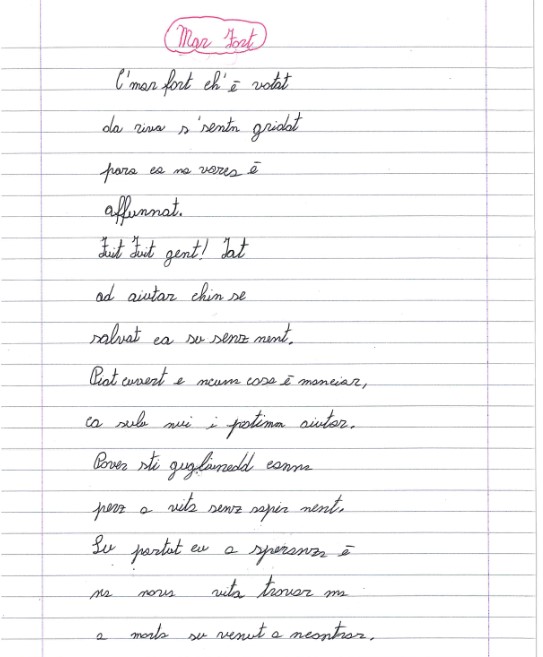 Mar Fort
C'mar fort ch'è votat
da riva s'sentn gridat
para ca na varca è
affunnat.
Fuit Fuit gent! Fat
ad aiutar chin se
salvat ca su senz nent.
Piat cuvert e ncum cosa è manciar,
ca sulo nui i putimm aiutar.
Pover sti guagliunedd canna
perz a vita senz sapir nent.
Su partut cu a speranza è
na nova vita truvar ma
a morta su venut a ncontrar.